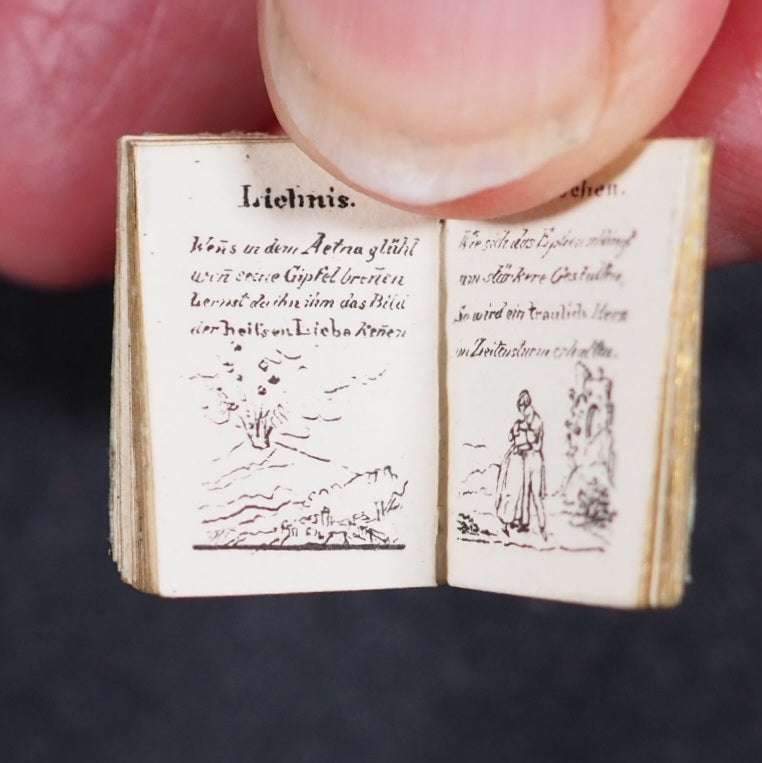 Lichnis.
Weñs in dem Aetna glühl
weñ seine Gipfel breñen
Lernst du ihn ihm das Bild
der heilsen Liebe Keñen
chen.
Wie sich das Epheu
um stärkere Gestalten,
So wird ein traulich Herz
im Zeitensturm erhalten.